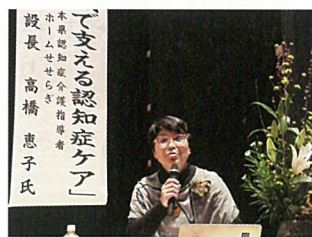 で支える認知症ケア」
本県認知症介護指導者
ホームせせらぎ
設長 高橋 恵子氏